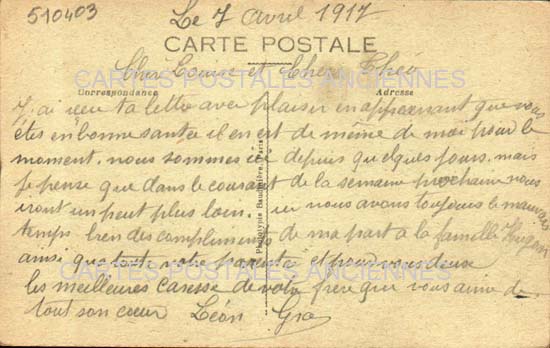 510403
Le 7 avril 1917
CARTE POSTALE
Cher Louise et Chère Théo
CARTES POSTALES ANCIENNES
Correspondance Adresse
J'ai reçu ta lettre avec plaisir en apprenant que vous
êtes en bonne santée il en est de même de moi pour le
moment. nous sommes ici depuis quelques jours. mais
je pense que dans le courant de la semaine prochaine nous
iront un peut plus loin. ici nous avons toujours le mauvais
temps bien des compliments de ma part a la famille
ainsi que toute votre parentée et pour vous deux
les meilleures caresse de votre frère qui vous aime de
tout son coeur Léon Gra
Phototypie Baudinière, Paris
CARTES POSTALES ANCIENNES